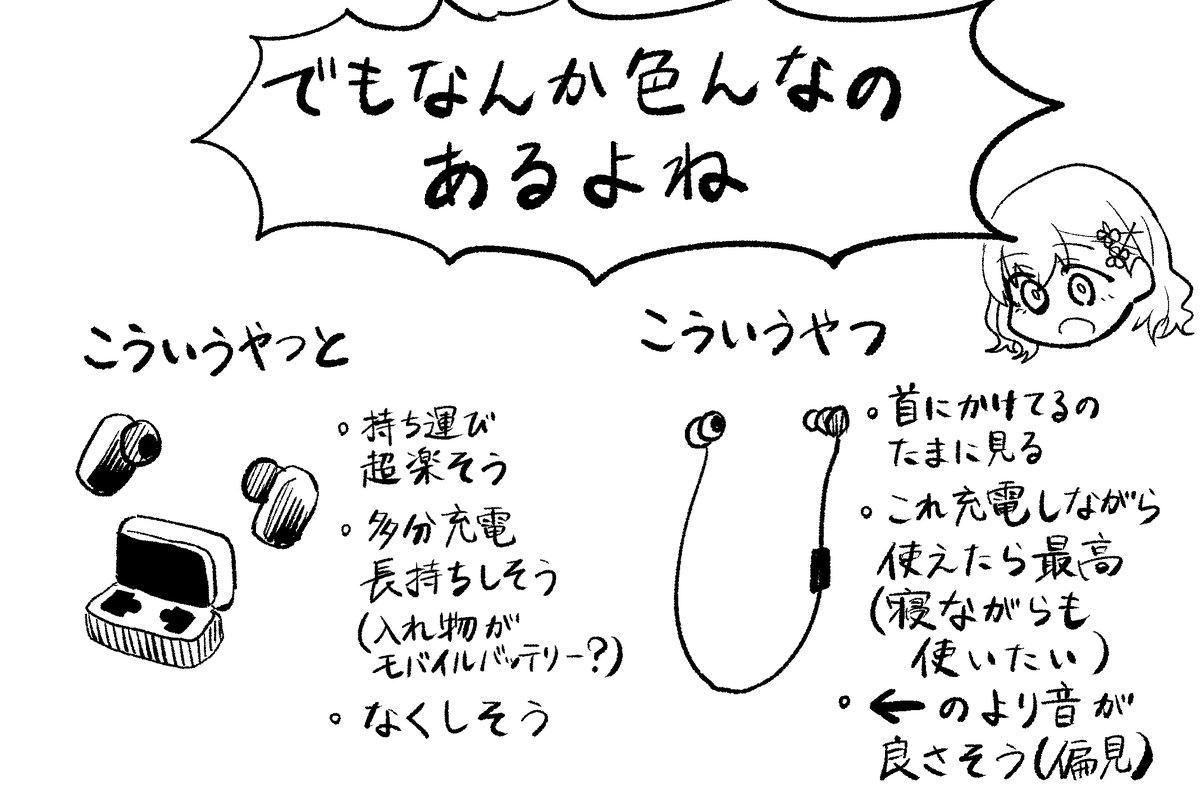 でもなんか色んなの
あるよね
こういうやつと
。持ち運び
超楽そう
。多分充電
長持ちしそう
(入れ物が
モバイルバッテリー?)
。なくしそう
こういうやつ
。首にかけてるの
たまに見る
。これ充電しながら
使えたら最高
(寝ながらも
使いたい)
。←のより音が
良さそう(偏見)